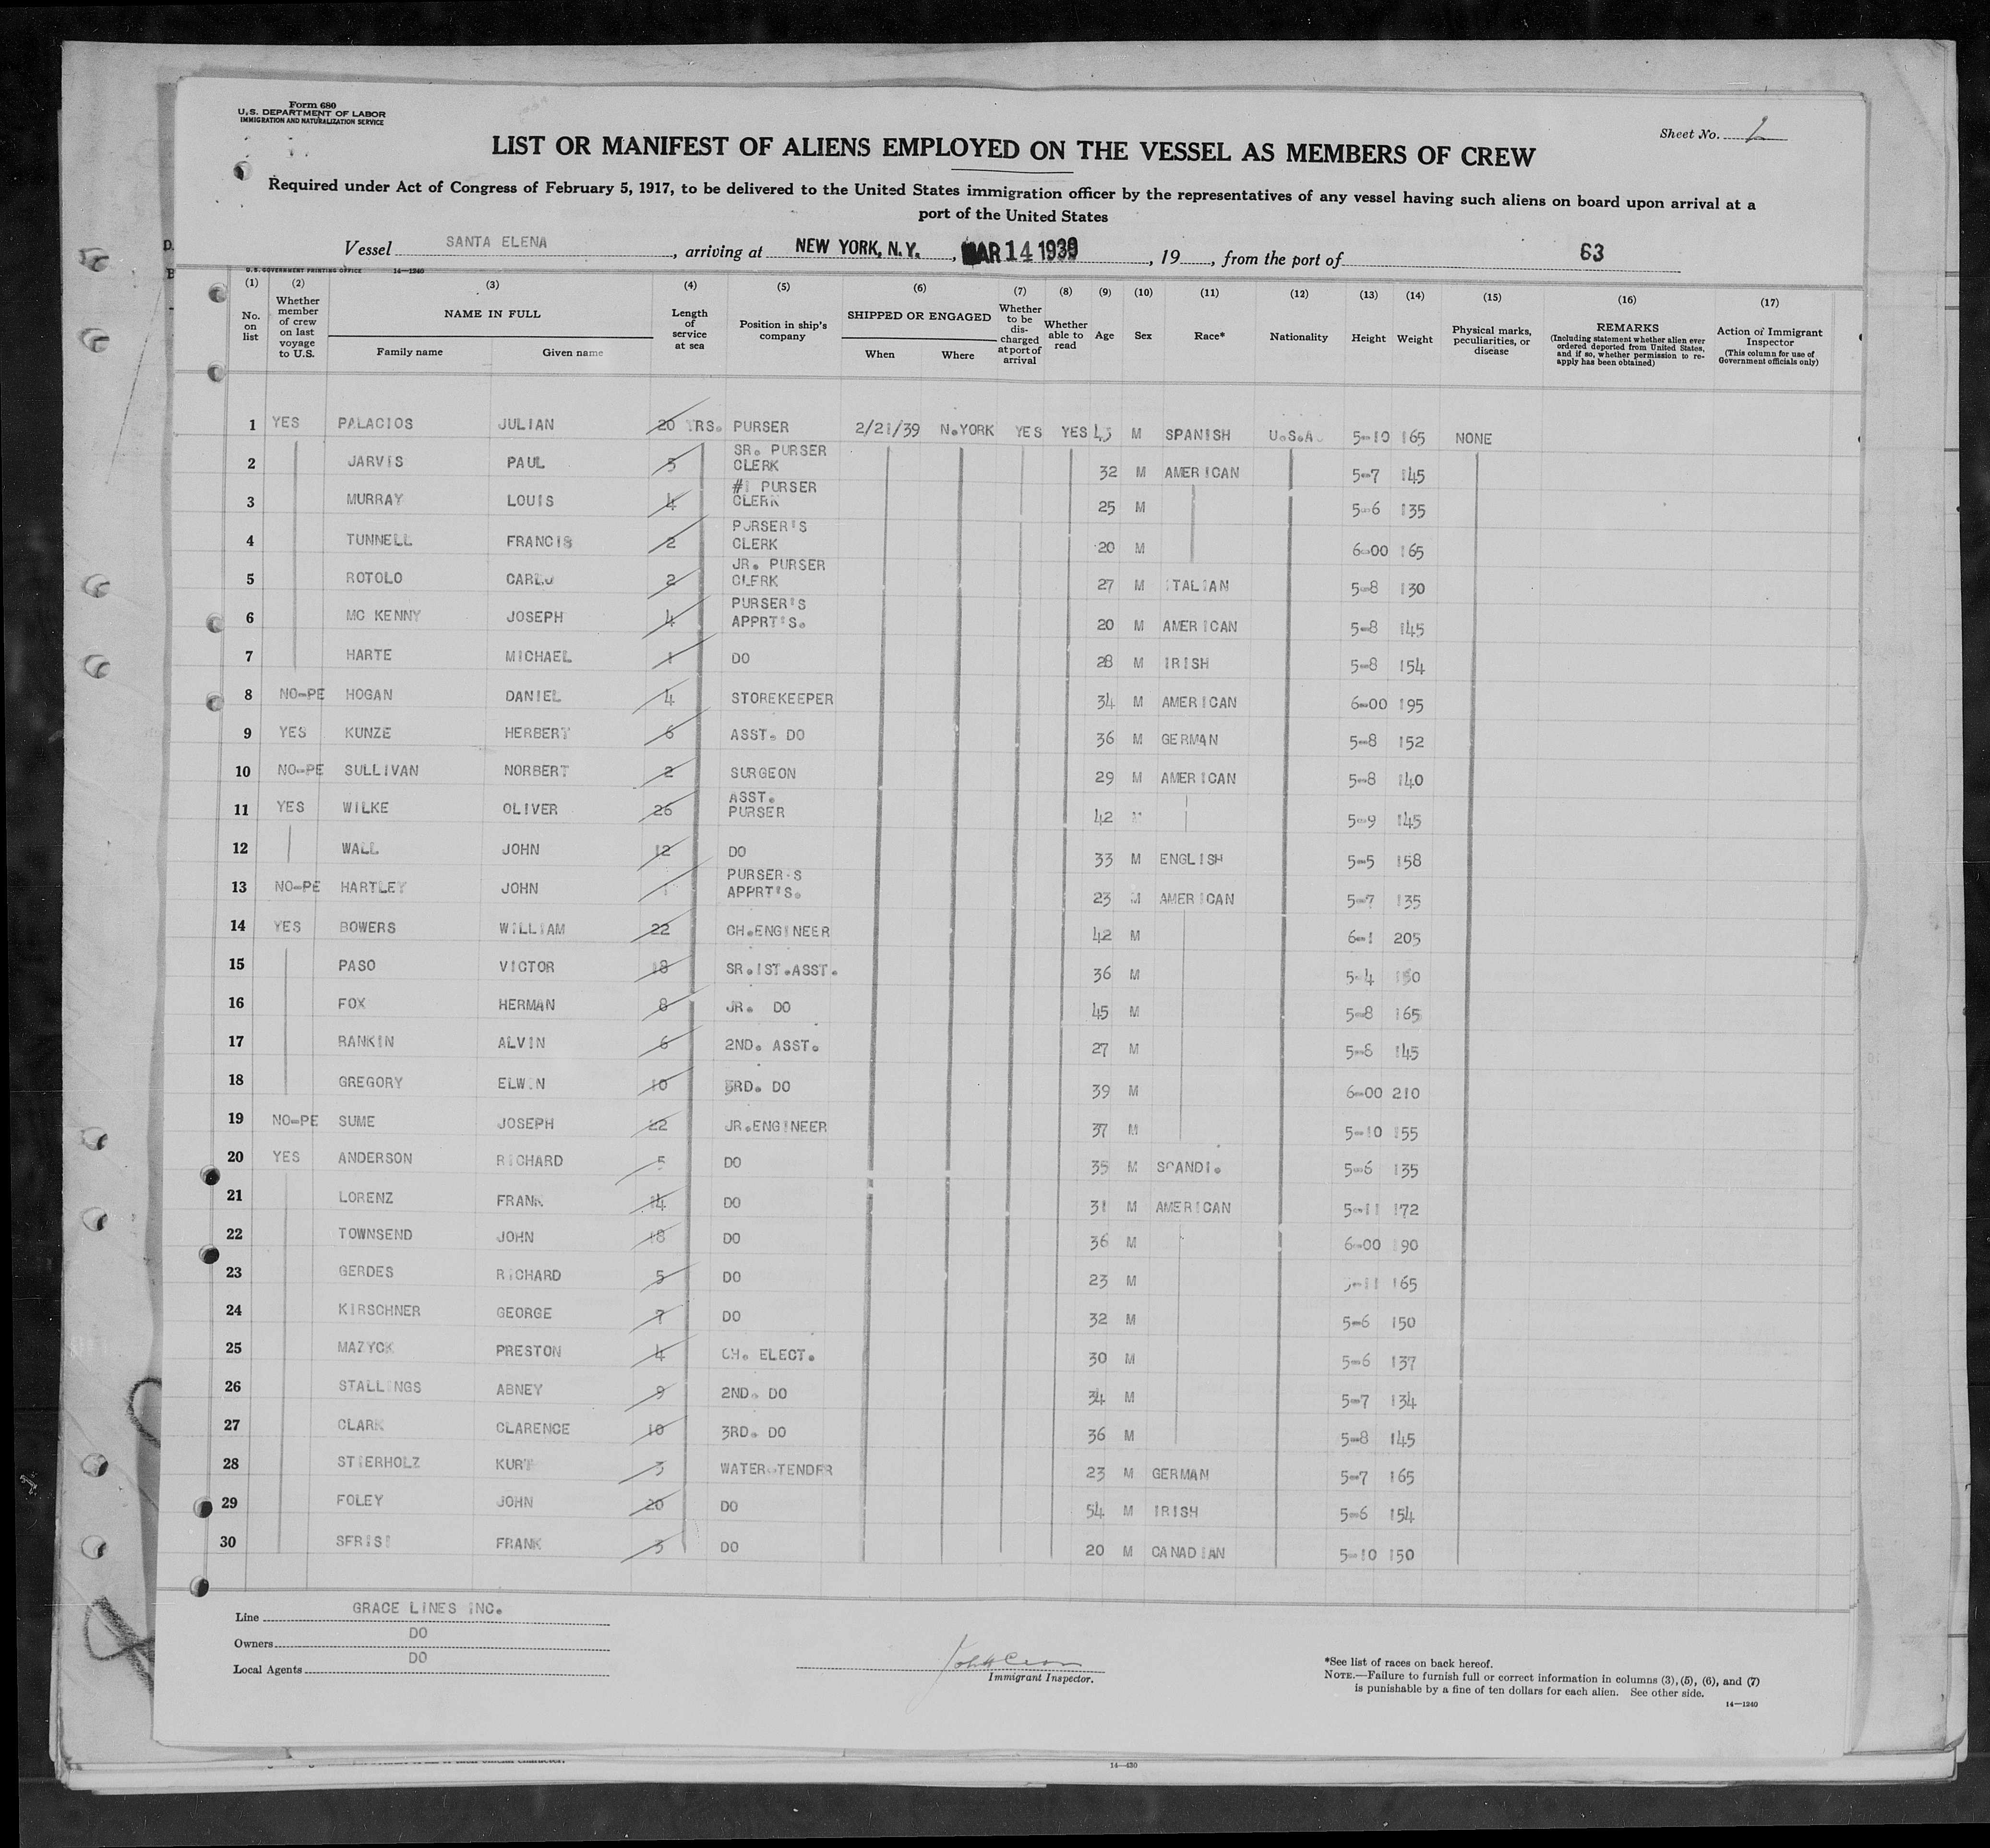 Form 680
U.S. DEPARTMENT OF LABOR
IMMIGRATION AND NATURALIZATION SERVICE
Sheet No.
LIST OR MANIFEST OF ALIENS EMPLOYED ON THE VESSEL AS MEMBERS OF CREW
Required under Act of Congress of February 5, 1917, to be delivered to the United States immigration officer by the representatives of any vessel having such aliens on board upon arrival at a
port of the United States
Vessel SANTA ELENA, arriving at NEW YORK, N.Y., MAR 14 1939, 19, from the port of 63
U.S. GOVERNMENT PRINTING OFFICE 14—1240
(1) (2) (3) (4) (5) (6) (7) (8) (9) (10) (11) (12) (13) (14) (15) (16) (17)
No. on list
Whether member of crew on last voyage to U.S.
NAME IN FULL
Family name Given name
Length of service at sea
Position in ship's company
SHIPPED OR ENGAGED
When Where
Whether to be discharged at port of arrival
Whether able to read
Age Sex Race* Nationality Height Weight
Physical marks, peculiarities, or disease
REMARKS
(Including statement whether alien ever ordered deported from United States, and if so, whether permission to re-apply has been obtained)
Action of Immigrant Inspector
(This column for use of Government officials only)
1 YES PALACIOS JULIAN 20 YRS. PURSER 2/21/39 N.YORK YES YES 43 M SPANISH U.S.A. 5-10 165 NONE
2 JARVIS PAUL 5 SR. PURSER CLERK 32 M AMERICAN 5-7 145
3 MURRAY LOUIS 4 #1 PURSER CLERK 25 M 5-6 135
4 TUNNELL FRANCIS 2 PURSER'S CLERK 20 M 6-00 165
5 ROTOLO CARLO 2 JR. PURSER CLERK 27 M ITALIAN 5-8 130
6 MC KENNY JOSEPH 4 PURSER'S APPRT'S. 20 M AMERICAN 5-8 145
7 HARTE MICHAEL 1 DO 28 M IRISH 5-8 154
8 NO-PE HOGAN DANIEL 4 STOREKEEPER 34 M AMERICAN 6-00 195
9 YES KUNZE HERBERT 6 ASST. DO 36 M GERMAN 5-8 152
10 NO-PE SULLIVAN NORBERT 2 SURGEON 29 M AMERICAN 5-8 140
11 YES WILKE OLIVER 26 ASST. PURSER 42 M 5-9 145
12 WALL JOHN 12 DO 33 M ENGLISH 5-5 158
13 NO-PE HARTLEY JOHN 1 PURSER'S APPRT'S. 23 M AMERICAN 5-7 135
14 YES BOWERS WILLIAM 22 CH.ENGINEER 42 M 6-1 205
15 PASO VICTOR 18 SR.1ST.ASST. 36 M 5-4
16 FOX HERMAN 8 JR. DO 45 M 5-8 165
17 RANKIN ALVIN 6 2ND. ASST. 27 M 5-8 145
18 GREGORY ELWIN 10 3RD. DO 39 M 6-00 210
19 NO-PE SUME JOSEPH 22 JR.ENGINEER 37 M 5-10 155
20 YES ANDERSON RICHARD 5 DO 35 M SCANDI. 5-6 135
21 LORENZ FRANK 14 DO 31 M AMERICAN 5-11 172
22 TOWNSEND JOHN 18 DO 36 M 6-00 190
23 GERDES RICHARD 5 DO 23 M 5-11 165
24 KIRSCHNER GEORGE 7 DO 32 M 5-6 150
25 MAZYCK PRESTON 4 CH. ELECT. 30 M 5-6 137
26 STALLINGS ABNEY 9 2ND. DO 34 M 5-7 134
27 CLARK CLARENCE 10 3RD. DO 36 M 5-8 145
28 STIERHOLZ KURT 3 WATER-TENDER 23 M GERMAN 5-7 165
29 FOLEY JOHN 20 DO 54 M IRISH 5-6 154
30 SFRISI FRANK 3 DO 20 M CANADIAN 5-10 150
Line GRACE LINES INC.
Owners DO
Local Agents DO
Immigrant Inspector.
*See list of races on back hereof.
NOTE.—Failure to furnish full or correct information in columns (3), (5), (6), and (7)
is punishable by a fine of ten dollars for each alien. See other side.
14—1240
14—430